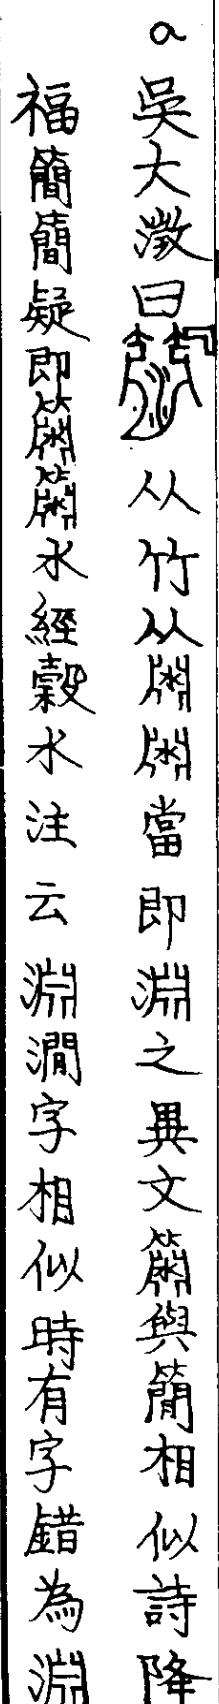 a 吳大澂曰从竹从𣶒𣶒當即淵之異文與簡相似詩降
福簡簡疑即水經穀水注云淵澗字相似時有字錯為淵